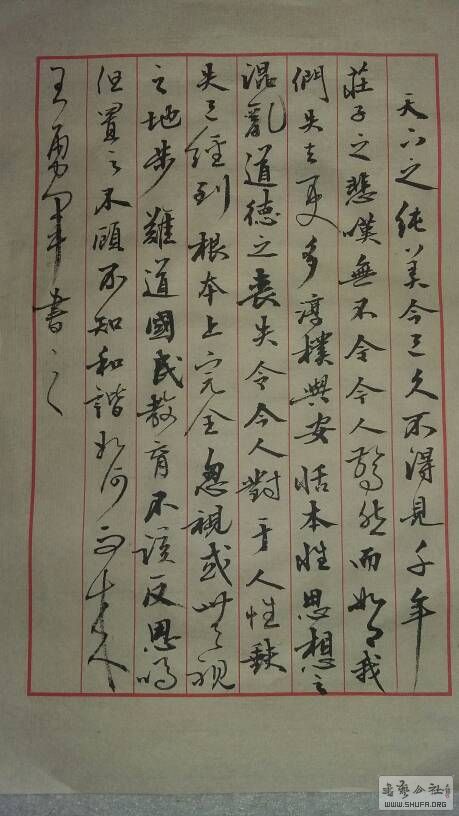 天下之纯美今已久不得見千年
莊子之悲嘆無不令今人驚然而如今我
們失去更多淳樸與安恬本性思想之
混亂道德之喪失令今人對于人性缺
失已經到根本上完全忽視或無視
之地步難道國民教育不該反思嗎
但置之不顧不知和諧如何而来
王書
書艺公社
WWW.SHUFA.ORG